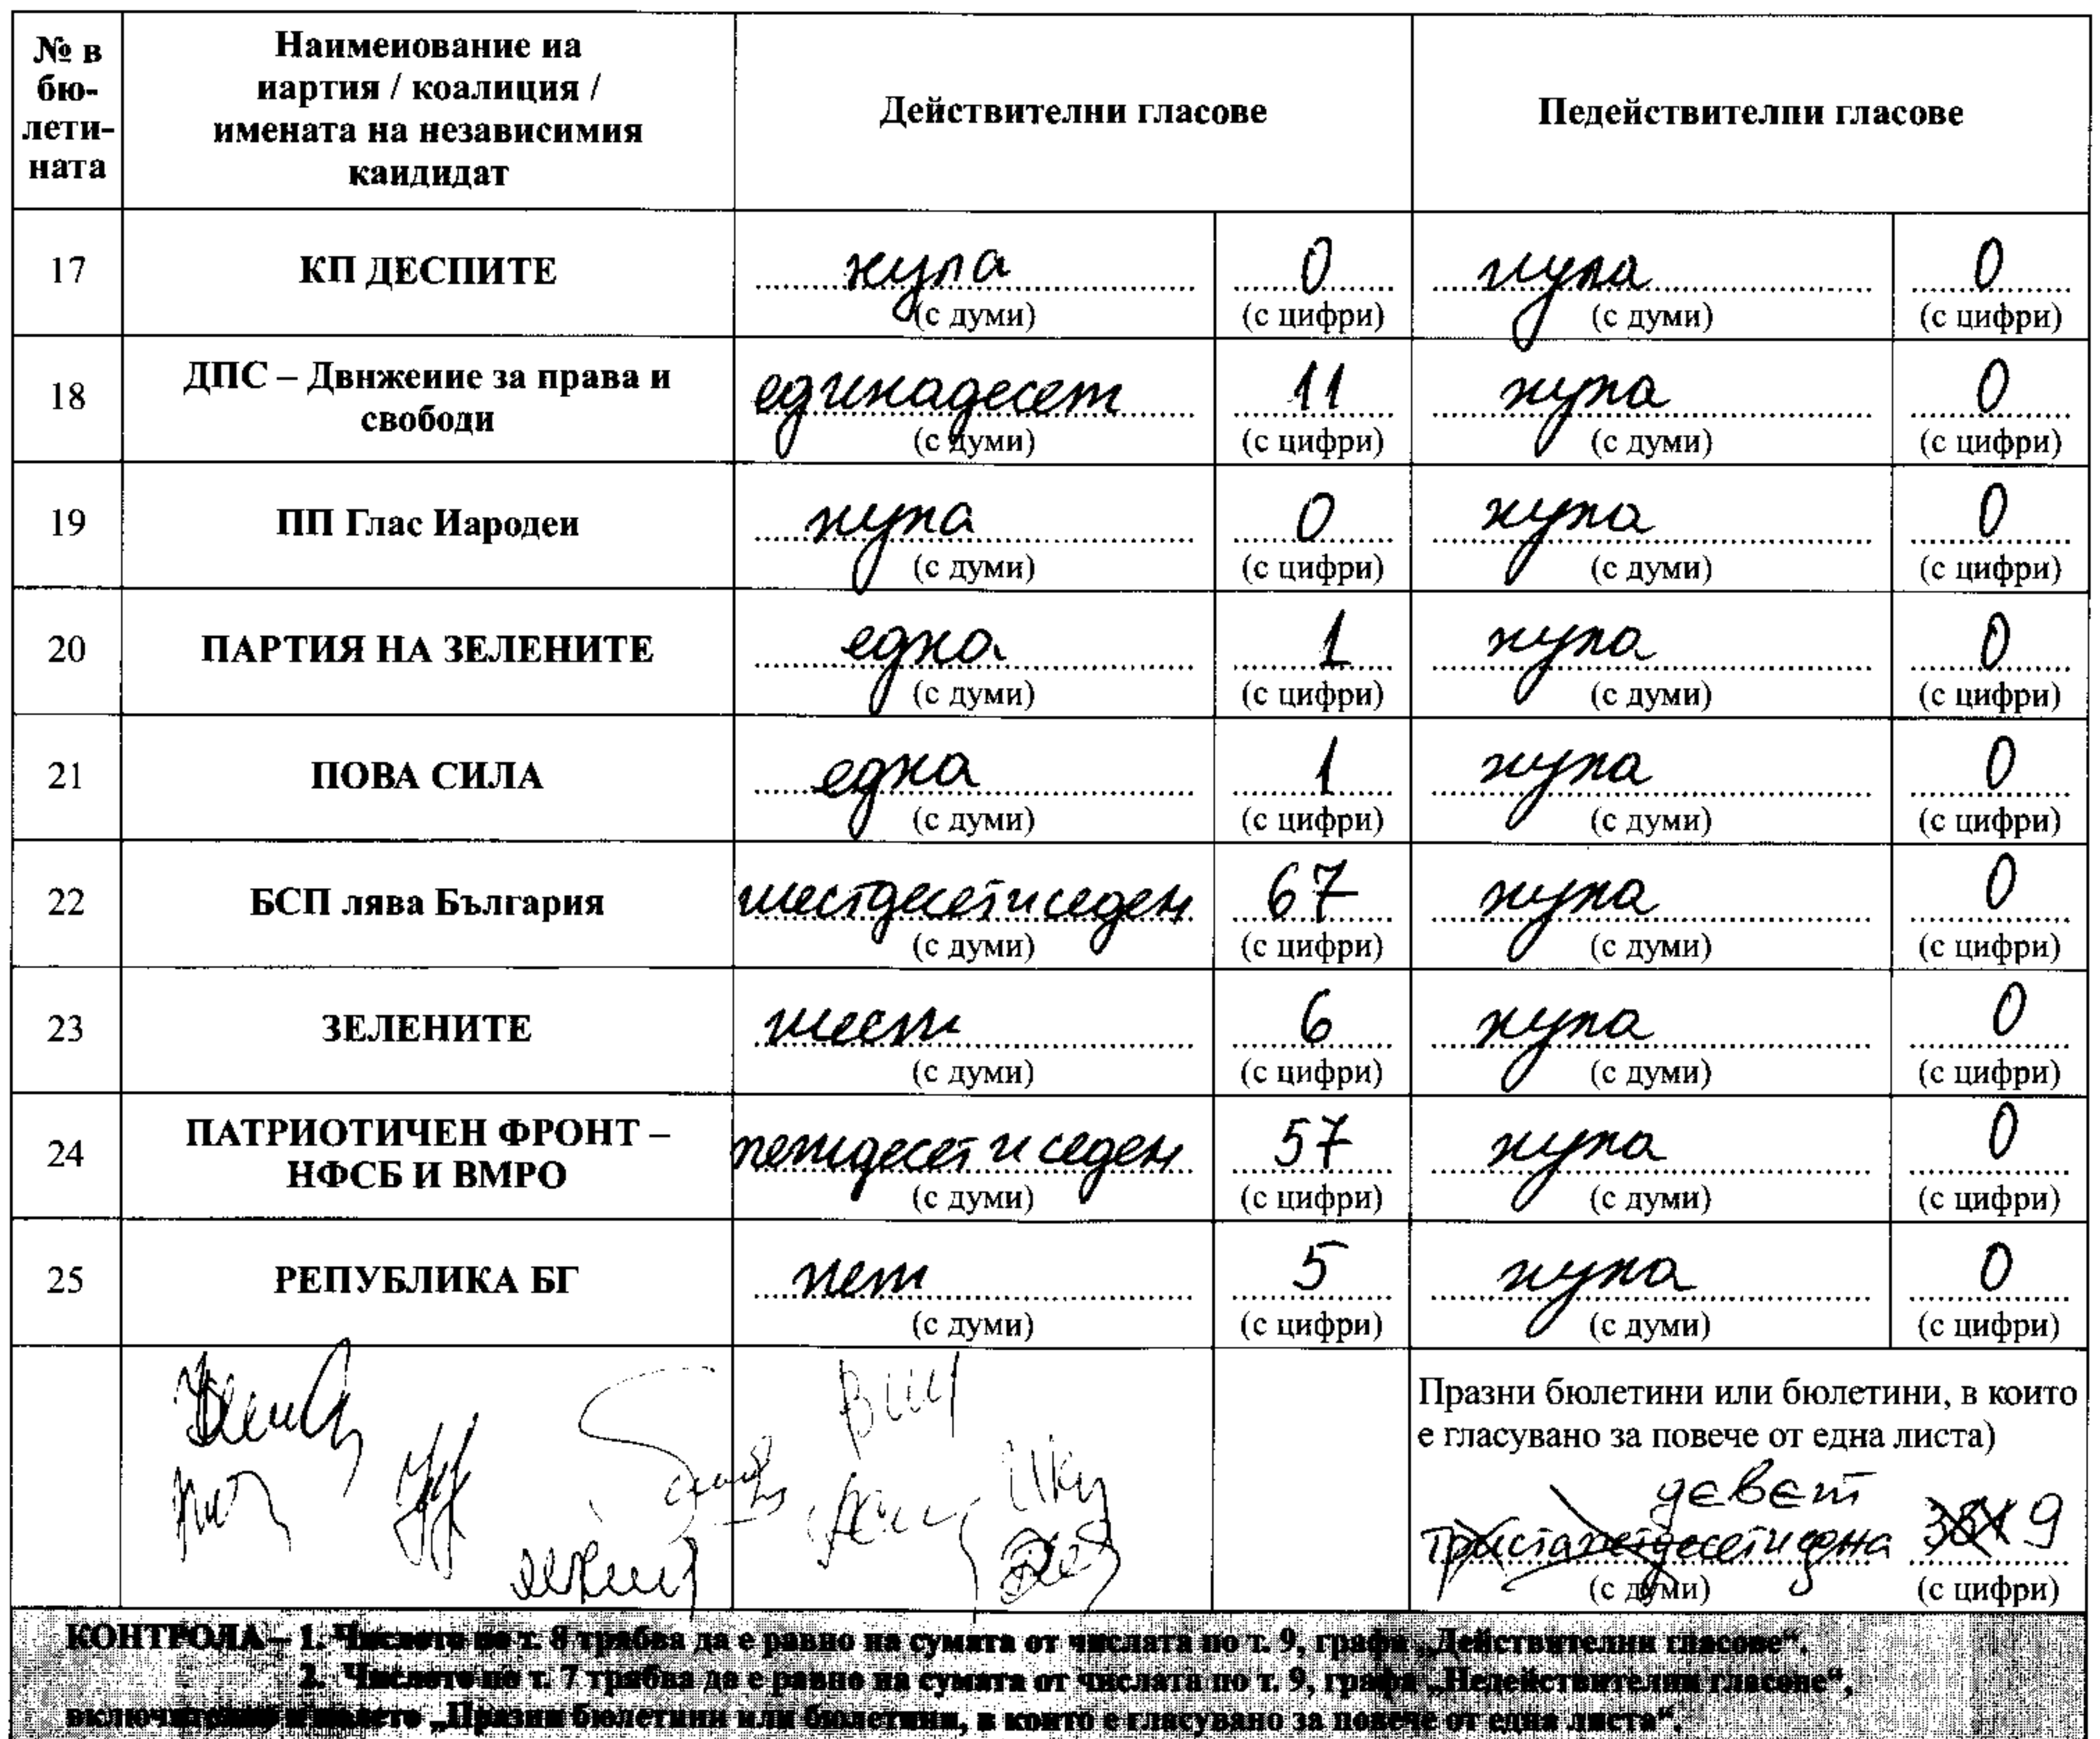 № в
бю-
лети-
ната
Наименование на
партия / коалиция /
имената на независимия
кандидат
Действителни гласове
Недействителни гласове
17 КП ДЕСПИТЕ нула 0 нула 0
(с думи) (с цифри) (с думи) (с цифри)
18 ДПС – Движение за права и
свободи единадесет 11 нула 0
(с думи) (с цифри) (с думи) (с цифри)
19 ПП Глас Народен нула 0 нула 0
(с думи) (с цифри) (с думи) (с цифри)
20 ПАРТИЯ НА ЗЕЛЕНИТЕ една 1 нула 0
(с думи) (с цифри) (с думи) (с цифри)
21 НОВА СИЛА една 1 нула 0
(с думи) (с цифри) (с думи) (с цифри)
22 БСП лява България шестдесет и седем 67 нула 0
(с думи) (с цифри) (с думи) (с цифри)
23 ЗЕЛЕНИТЕ шест 6 нула 0
(с думи) (с цифри) (с думи) (с цифри)
24 ПАТРИОТИЧЕН ФРОНТ –
НФСБ И ВМРО петдесет и седем 57 нула 0
(с думи) (с цифри) (с думи) (с цифри)
25 РЕПУБЛИКА БГ пет 5 нула 0
(с думи) (с цифри) (с думи) (с цифри)
Празни бюлетини или бюлетини, в които
е гласувано за повече от една листа)
девет
триста петдесет и една 351 9
(с думи) (с цифри)
КОНТРОЛА – 1. Числото по т. 8 трябва да е равно на сумата от числата по т. 9, графа „Действителни гласове“.
2. Числото по т. 7 трябва да е равно на сумата от числата по т. 9, графа „Недействителни гласове“,
включително и полето „Празни бюлетини или бюлетини, в които е гласувано за повече от една листа“.